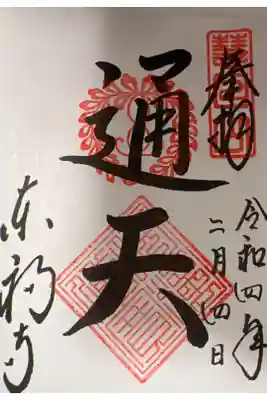 奉拝
令和四年
二月四日
通天
東福寺